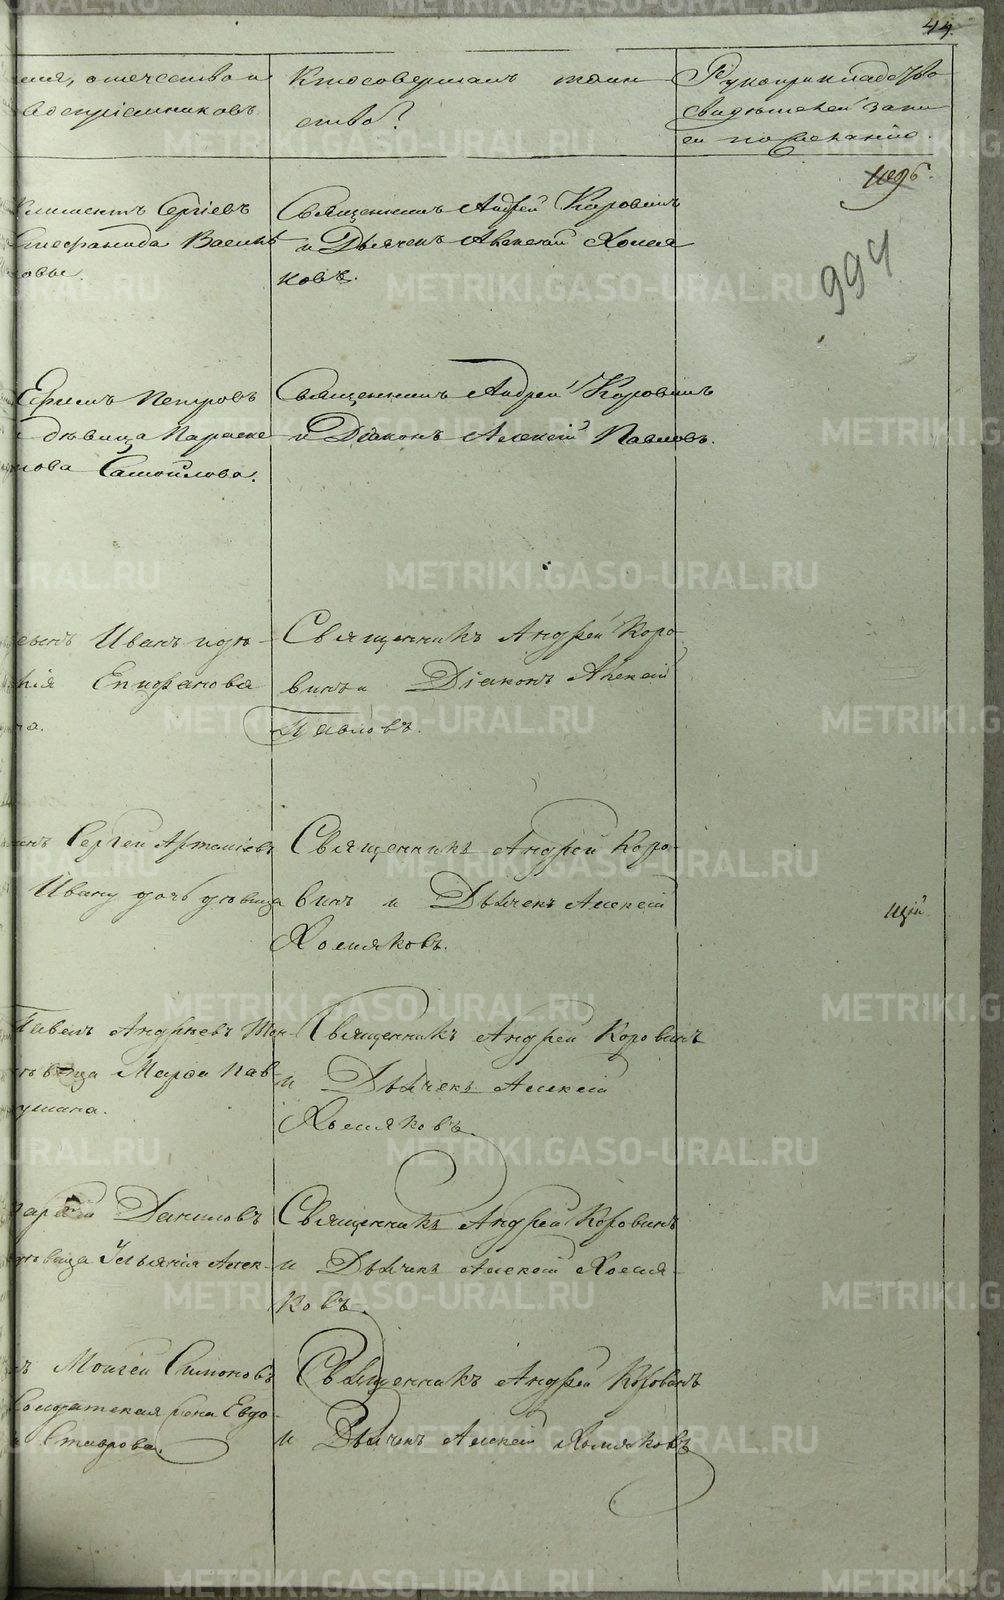 44.
отчество и
воспріемниковъ
Кто совершалъ таин
ство?
Рукоприкладство
свидѣтелей запи
си по желанію.
Климентъ Сергіевъ
Стефанида Василь
овы.
Священникъ Андрей Коровинъ
и Дьячекъ Алексѣй Хомя
ковъ.
994
Ефимъ Петровъ
дѣвица Параске
Самойлова.
Священникъ Андрей Коровинъ
и Діаконъ Алексій Павловъ.
сынъ Иванъ и дѣ-
нія Епифанова
на.
Священникъ Андрей Коро
винъ и Діаконъ Алексій
Павловъ.
Сергей Артаміевъ
Ивану дочь дѣвица
Священникъ Андрей Коро-
винъ и Дьячекъ Алексій
Хомяковъ.
щій
Павелъ Андреевъ
дѣвица Марѳа Пав-
ушина.
Священникъ Андрей Коровинъ
и Дьячекъ Алексій
Хомяковъ.
Даниловъ
дѣвица Ульянія Алек-
Священникъ Андрей Коровинъ
и Дьячекъ Алексій Хомя-
ковъ.
ъ Моисей Симоновъ
Солдатская жена Евдо-
Ставрова.
Священникъ Андрей Коровинъ
и Дьячекъ Алексій Хомяковъ
METRIKI.GASO-URAL.RU